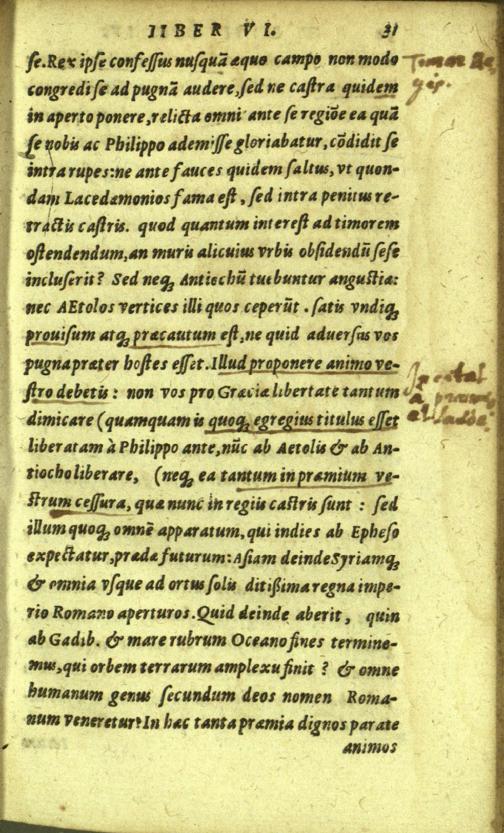 IIBER VI. 31
se. Rex ipse confessus nusquã æquo campo non modo
congredi se ad pugnã audere, sed ne castra quidem
in aperto ponere, relicta omni ante se regiõe ea quã
se nobis ac Philippo ademisse gloriabatur, cõdidit se
intra rupes: ne ante fauces quidem saltus, vt quon-
dam Lacedæmonios fama est, sed intra penitus re-
tractis castris. quod quantum interest ad timorem
ostendendum, an muris alicuius vrbis obsidendũ sese
incluserit? Sed neq; Antiochũ tuebuntur angustiæ:
nec AEtolos vertices illi quos ceperũt. satis vndiq;
prouisum atq; præcautum est, ne quid aduersus vos
pugna præter hostes esset. Illud proponere animo ve-
stro debetis: non vos pro Græciæ libertate tantum
dimicare (quamquam is quoq; egregius titulus esset
liberatam à Philippo ante, nũc ab Aetolis & ab An-
tiocho liberare, (neq; ea tantum in præmium ve-
strum cessura, quæ nunc in regiis castris sunt: sed
illum quoq; omnẽ apparatum, qui indies ab Epheso
expectatur, prædæ futurum: Asiam deinde Syriamq;
& omnia vsque ad ortus solis ditißima regna impe-
rio Romano aperturos. Quid deinde aberit, quin
ab Gadib. & mare rubrum Oceano fines termine-
mus, qui orbem terrarum amplexu finit? & omne
humanum genus secundum deos nomen Roma-
num veneretur? In hæc tanta præmia dignos parate
animos